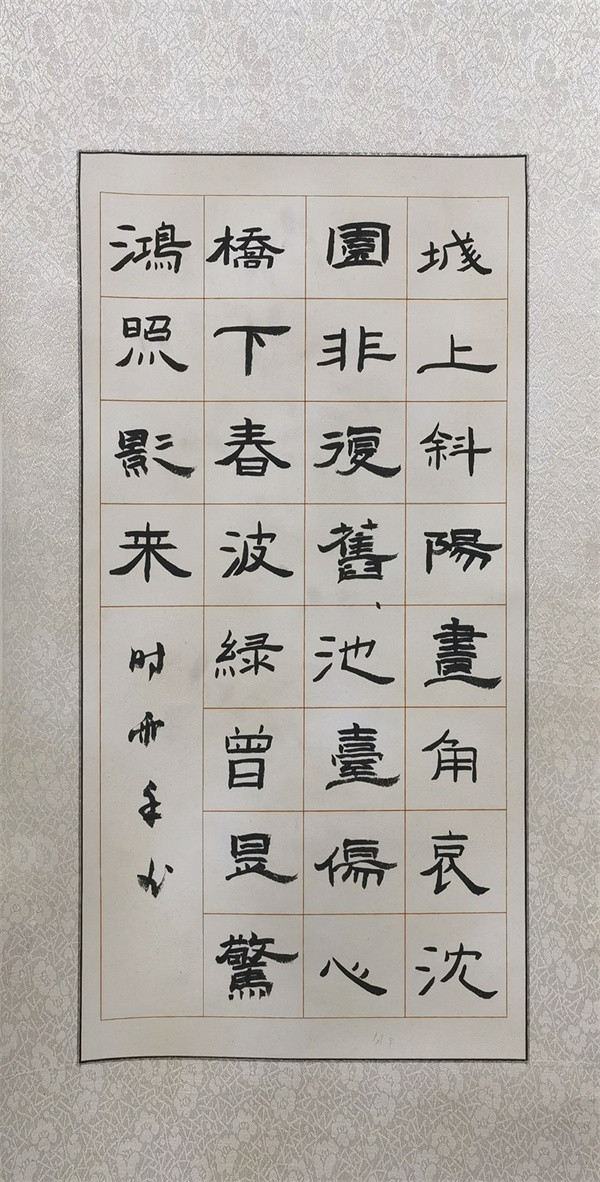 城上斜陽畫角哀沈
園非復舊池臺傷心
橋下春波綠曾是驚
鴻照影来
时雨手书